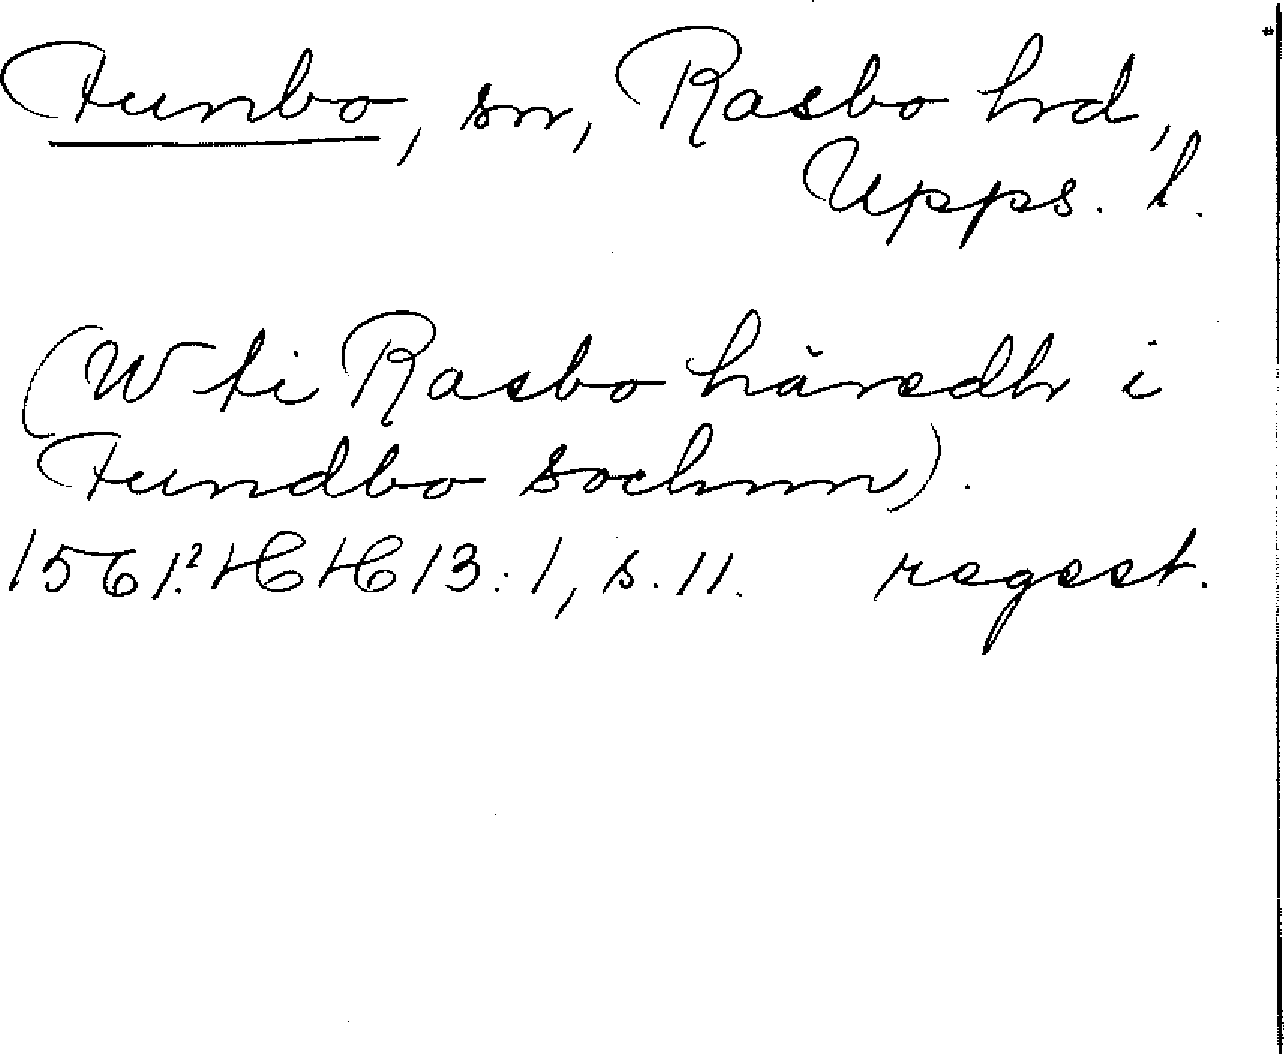 Funbo, sn, Rasbo hrd,
Upps. l.
(W ti Rasbo häredh i
Fundbo sochnn).
1561.² HH 13:1, s. 11. regest.